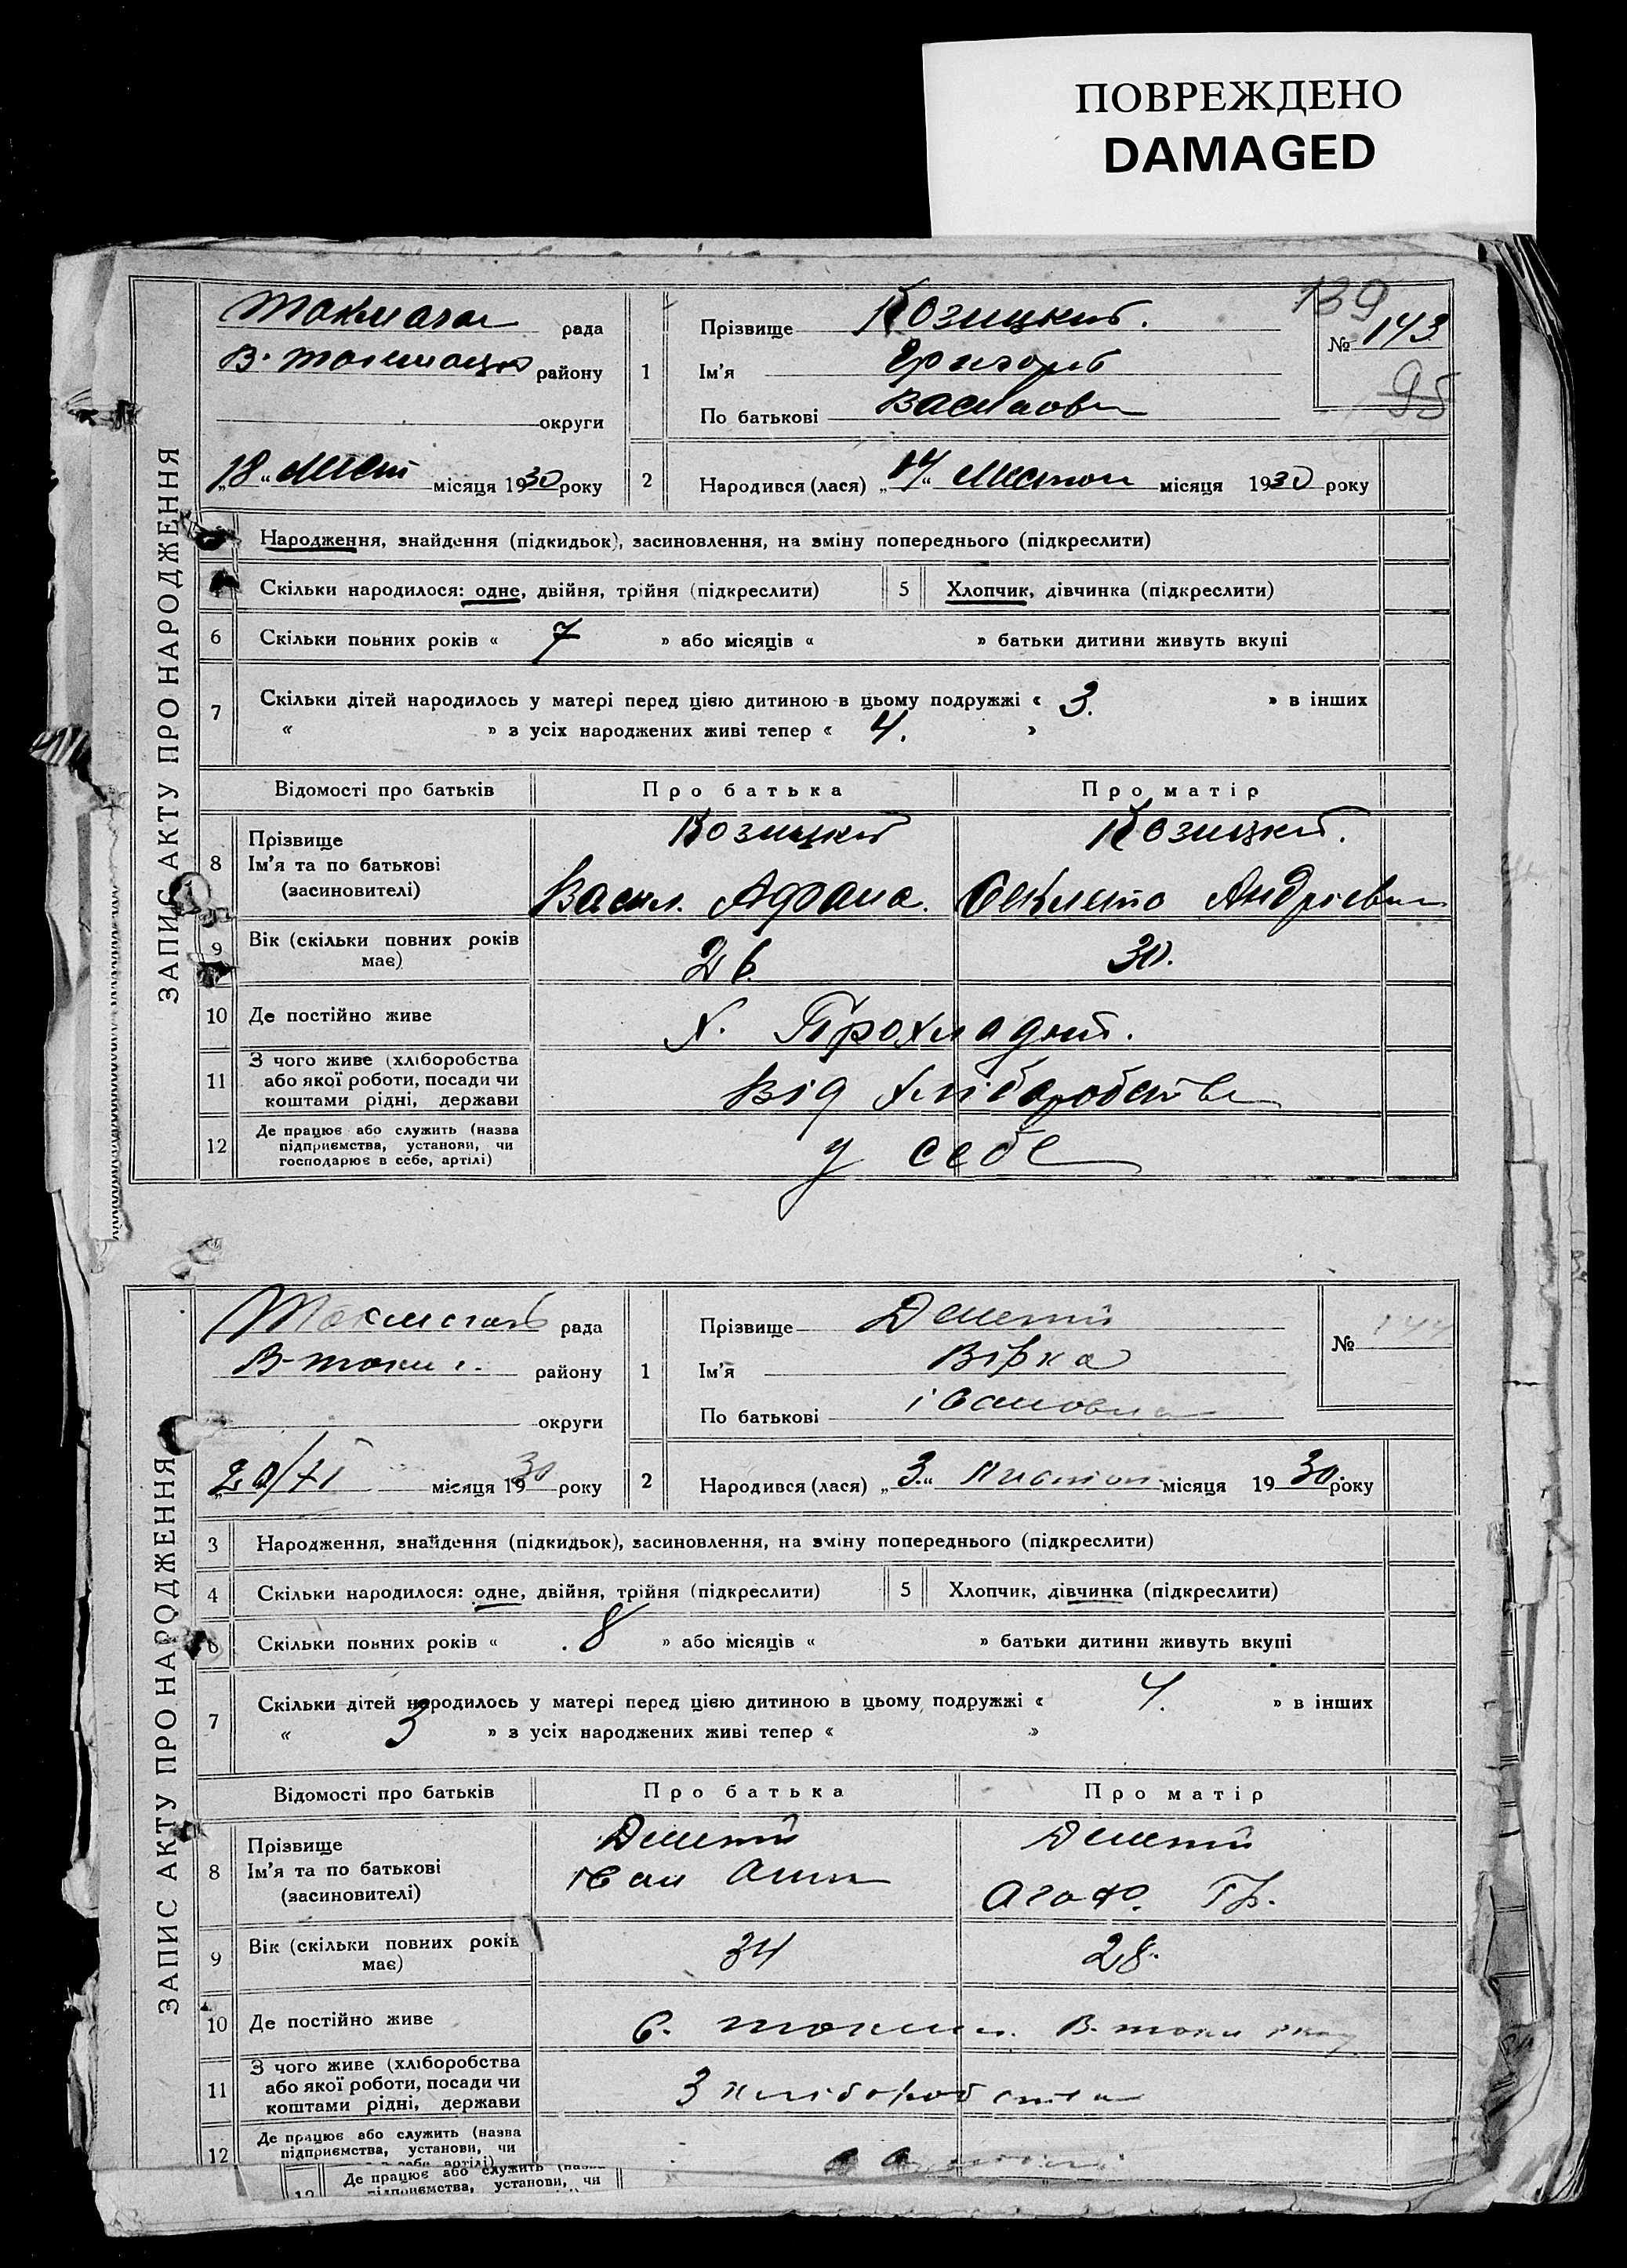 ПОВРЕЖДЕНО
DAMAGED
139
ЗАПИС АКТУ ПРО НАРОДЖЕННЯ
рада
району
округи
„18“ місяця 1930 року
1
Прізвище Козицкий.
Ім’я Григорій
По батькові
№ 143
95
2
Народився (лася) „14“ Листоп місяця 1930 року
Народження, знайдення (підкидьок), засиновлення, на зміну попереднього (підкреслити)
Скільки народилося: одне, двійня, трійня (підкреслити)
5 Хлопчик, дівчинка (підкреслити)
6 Скільки повних років « 7 » або місяців « » батьки дитини живуть вкупі
7 Скільки дітей народилось у матері перед цією дитиною в цьому подружжі « 3. » в інших
« » з усіх народжених живі тепер « 4. »
Відомості про батьків Про батька Про матір
8 Прізвище Козицкий Козицкий.
Ім’я та по батькові
(засиновителі) Васил. Афана. Андріевн
9 Вік (скільки повних років
має) 26. 30.
10 Де постійно живе Х. Прохладний.
11 З чого живе (хліборобства
або якої роботи, посади чи
коштами рідні, держави
Від хліборобства
12 Де працює або служить (назва
підприємства, установи, чи
господарює в себе, артілі)
у себе
ЗАПИС АКТУ ПРО НАРОДЖЕННЯ
рада
району
округи
„20/XI місяця 1930 року
1
Прізвище
Ім’я Вірка
По батькові Івановна
№ 144
2
Народився (лася) „3.“ Листоп місяця 1930. року
3 Народження, знайдення (підкидьок), засиновлення, на зміну попереднього (підкреслити)
4 Скільки народилося: одне, двійня, трійня (підкреслити)
5 Хлопчик, дівчинка (підкреслити)
6 Скільки повних років « 8 » або місяців « » батьки дитини живуть вкупі
7 Скільки дітей народилось у матері перед цією дитиною в цьому подружжі « 4. » в інших
« 3 » з усіх народжених живі тепер « »
Відомості про батьків Про батька Про матір
8 Прізвище
Ім’я та по батькові Іван
(засиновителі) Агаф. Гр.
9 Вік (скільки повних років
має) 34 28.
10 Де постійно живе
11 З чого живе (хліборобства
або якої роботи, посади чи
коштами рідні, держави
З хліборобства
12 Де працює або служить (назва
підприємства, установи, чи
Де працює або служить
підприємства, установи, чи